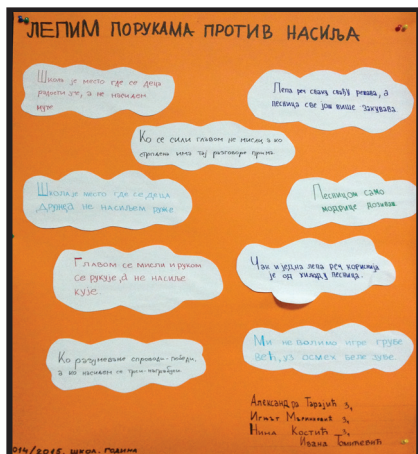 ЛЕПИМ ПОРУКАМА ПРОТИВ НАСИЉА
Школа је место где се деца
радости уче, а не насиљем
куже
Лепа реч сваку свађу решава, а
песница све још више закувава
Ко се сили главом не мисли, а ко
стрпљења има тај разговоре прима
Школа је место где се деца
друже, а не насиљем руже
Песницом само
модрице добијаш
Главом се мисли и руком
се рукује, а не насиље
кује.
Чак и једна лепа реч кориснија
је од хиљаду песница.
Ко разумевање спроводи - победи,
а ко насиљем се
Ми не волимо игре грубе
већ, уз осмех беле зубе.
Александра Тарајић 3₁
Игњат 3₁
Нина Костић 3₁
Ивана
014/2015. школ. година